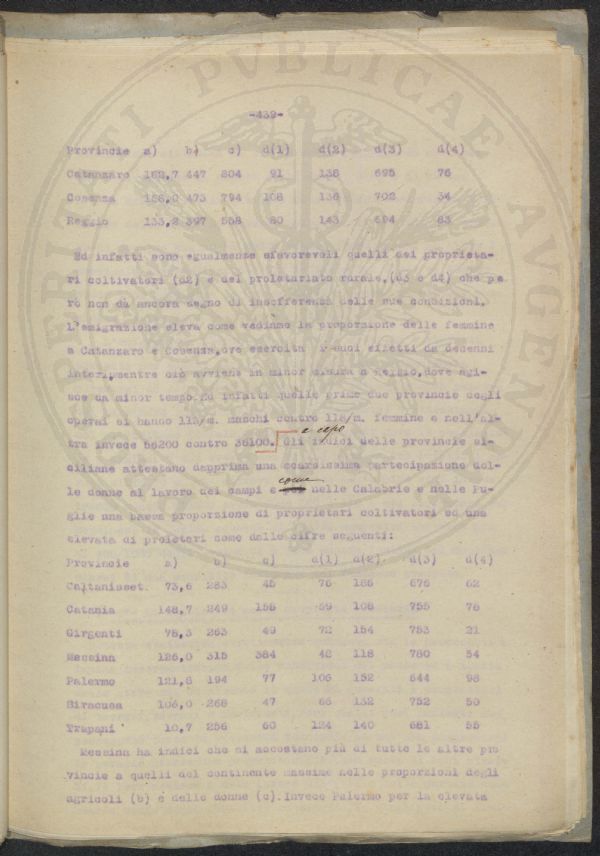 -439-
Provincie a) b) c) d(1) d(2) d(3) d(4)
Catanzaro 162,7 447 804 91 138 695 76
Cosenza 156,0 473 794 108 136 702 34
Reggio 133,2 397 558 80 143 694 83
Ed infatti sono egualmente sfavorevoli quelli dei proprieta-
ri coltivatori (d2) e del proletariato rurale, (d3 e d4) che pe
rò non dà ancora segno di insofferenza delle sue condizioni.
L'emigrazione eleva come vediamo la proporzione delle femmine
a Catanzaro e Cosenza, ove esercita i suoi effetti da decenni
interi, mentre ciò avviene in minor misura a Reggio, dove agi-
sce da minor tempo. Ed infatti quelle prime due provincie degli
operai si hanno 112/m. maschi contro 118/m. femmine e nell'al-
tra invece 56200 contro 36100. Gli indici delle provincie si-
a capo
ciliane attestano dapprima una scarsissima partecipazione del-
le donne al lavoro dei campi e come nelle Calabrie e nelle Pu-
glie una bassa proporzione di proprietari coltivatori ed una
elevata di proletari come dalle cifre seguenti:
Provincie a) b) c) d(1) d(2) d(3) d(4)
Caltanisset. 73,6 283 45 76 186 676 62
Catania 148,7 249 155 59 108 755 78
Girgenti 78,3 263 49 72 154 753 21
Messina 126,0 315 384 48 118 780 54
Palermo 121,8 194 77 106 152 644 98
Siracusa 106,0 268 47 66 132 752 50
Trapani 10,7 256 60 124 140 681 55
Messina ha indici che si accostano più di tutte le altre pro
vincie a quelli del continente massime nelle proporzioni degli
agricoli (b) e delle donne (c). Invece Palermo per la elevata